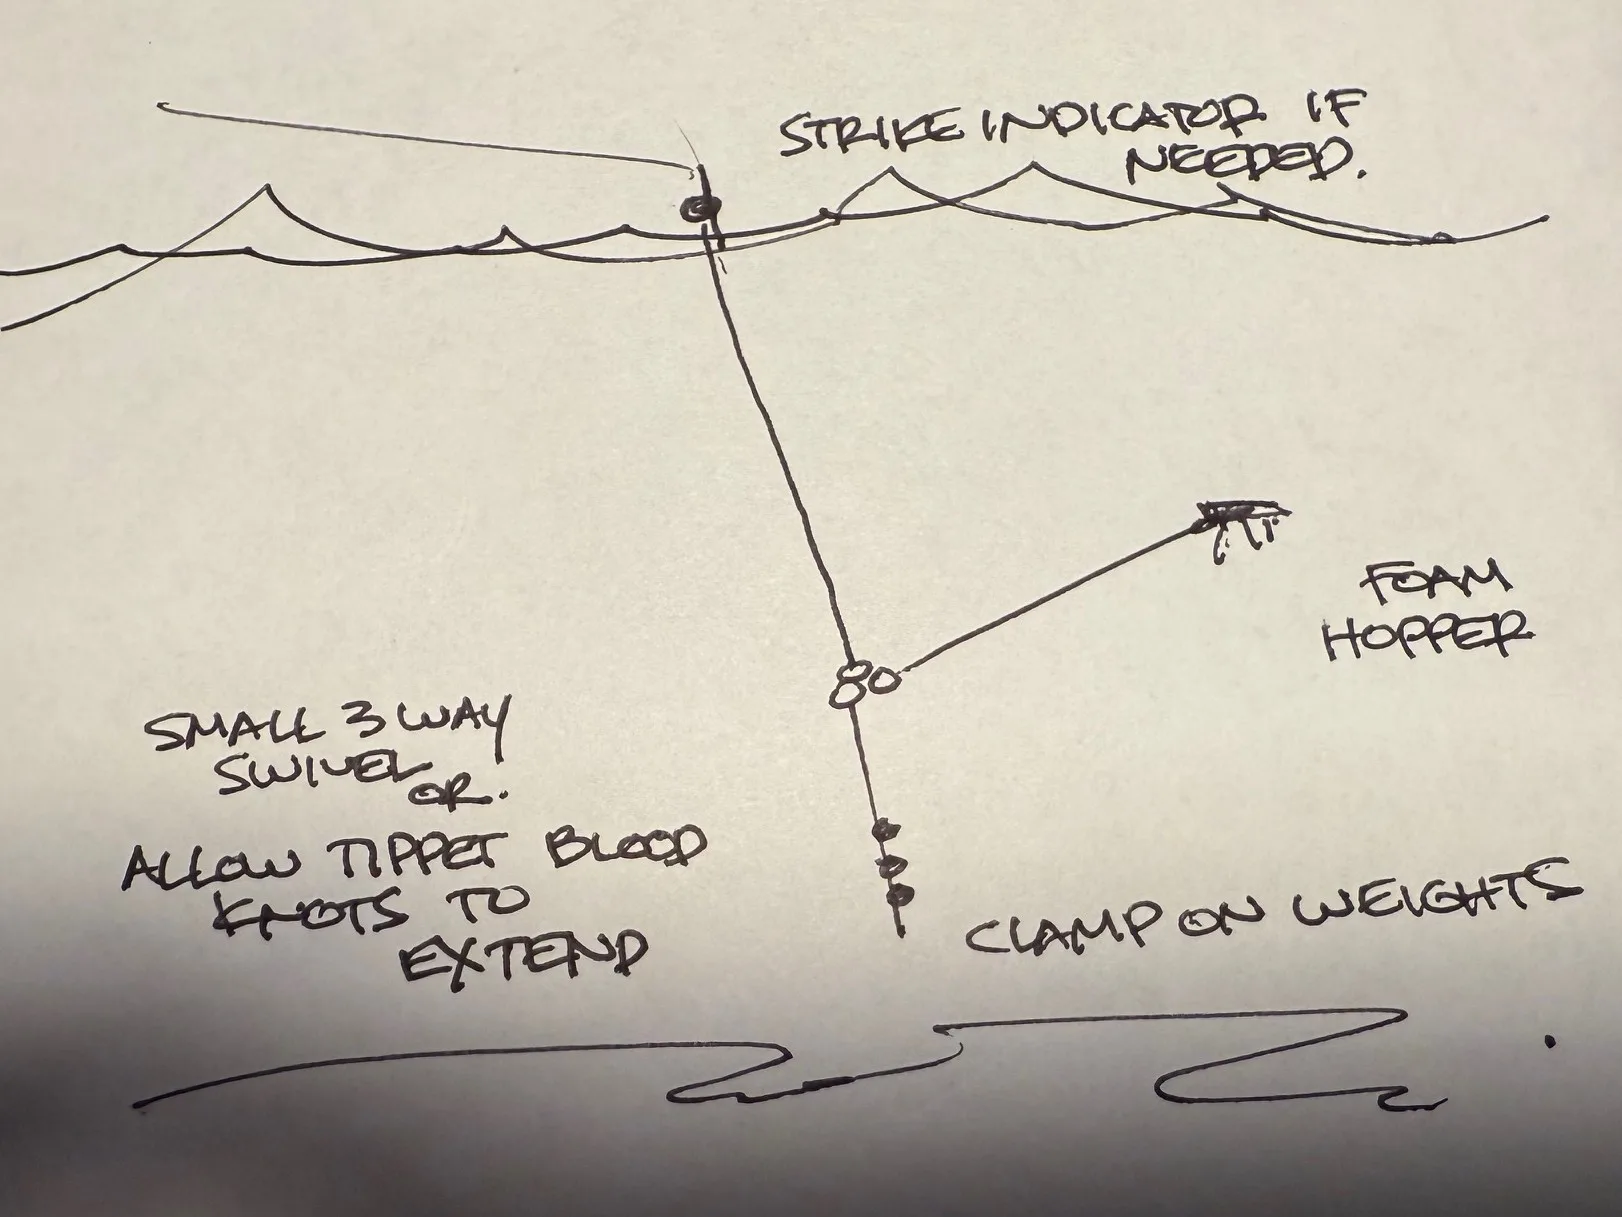 STRIKE INDICATOR IF
NEEDED.
FOAM
HOPPER
SMALL 3 WAY
SWIVEL
OR.
ALLOW TIPPET BLOOD
KNOTS TO
EXTEND
CLAMP ON WEIGHTS